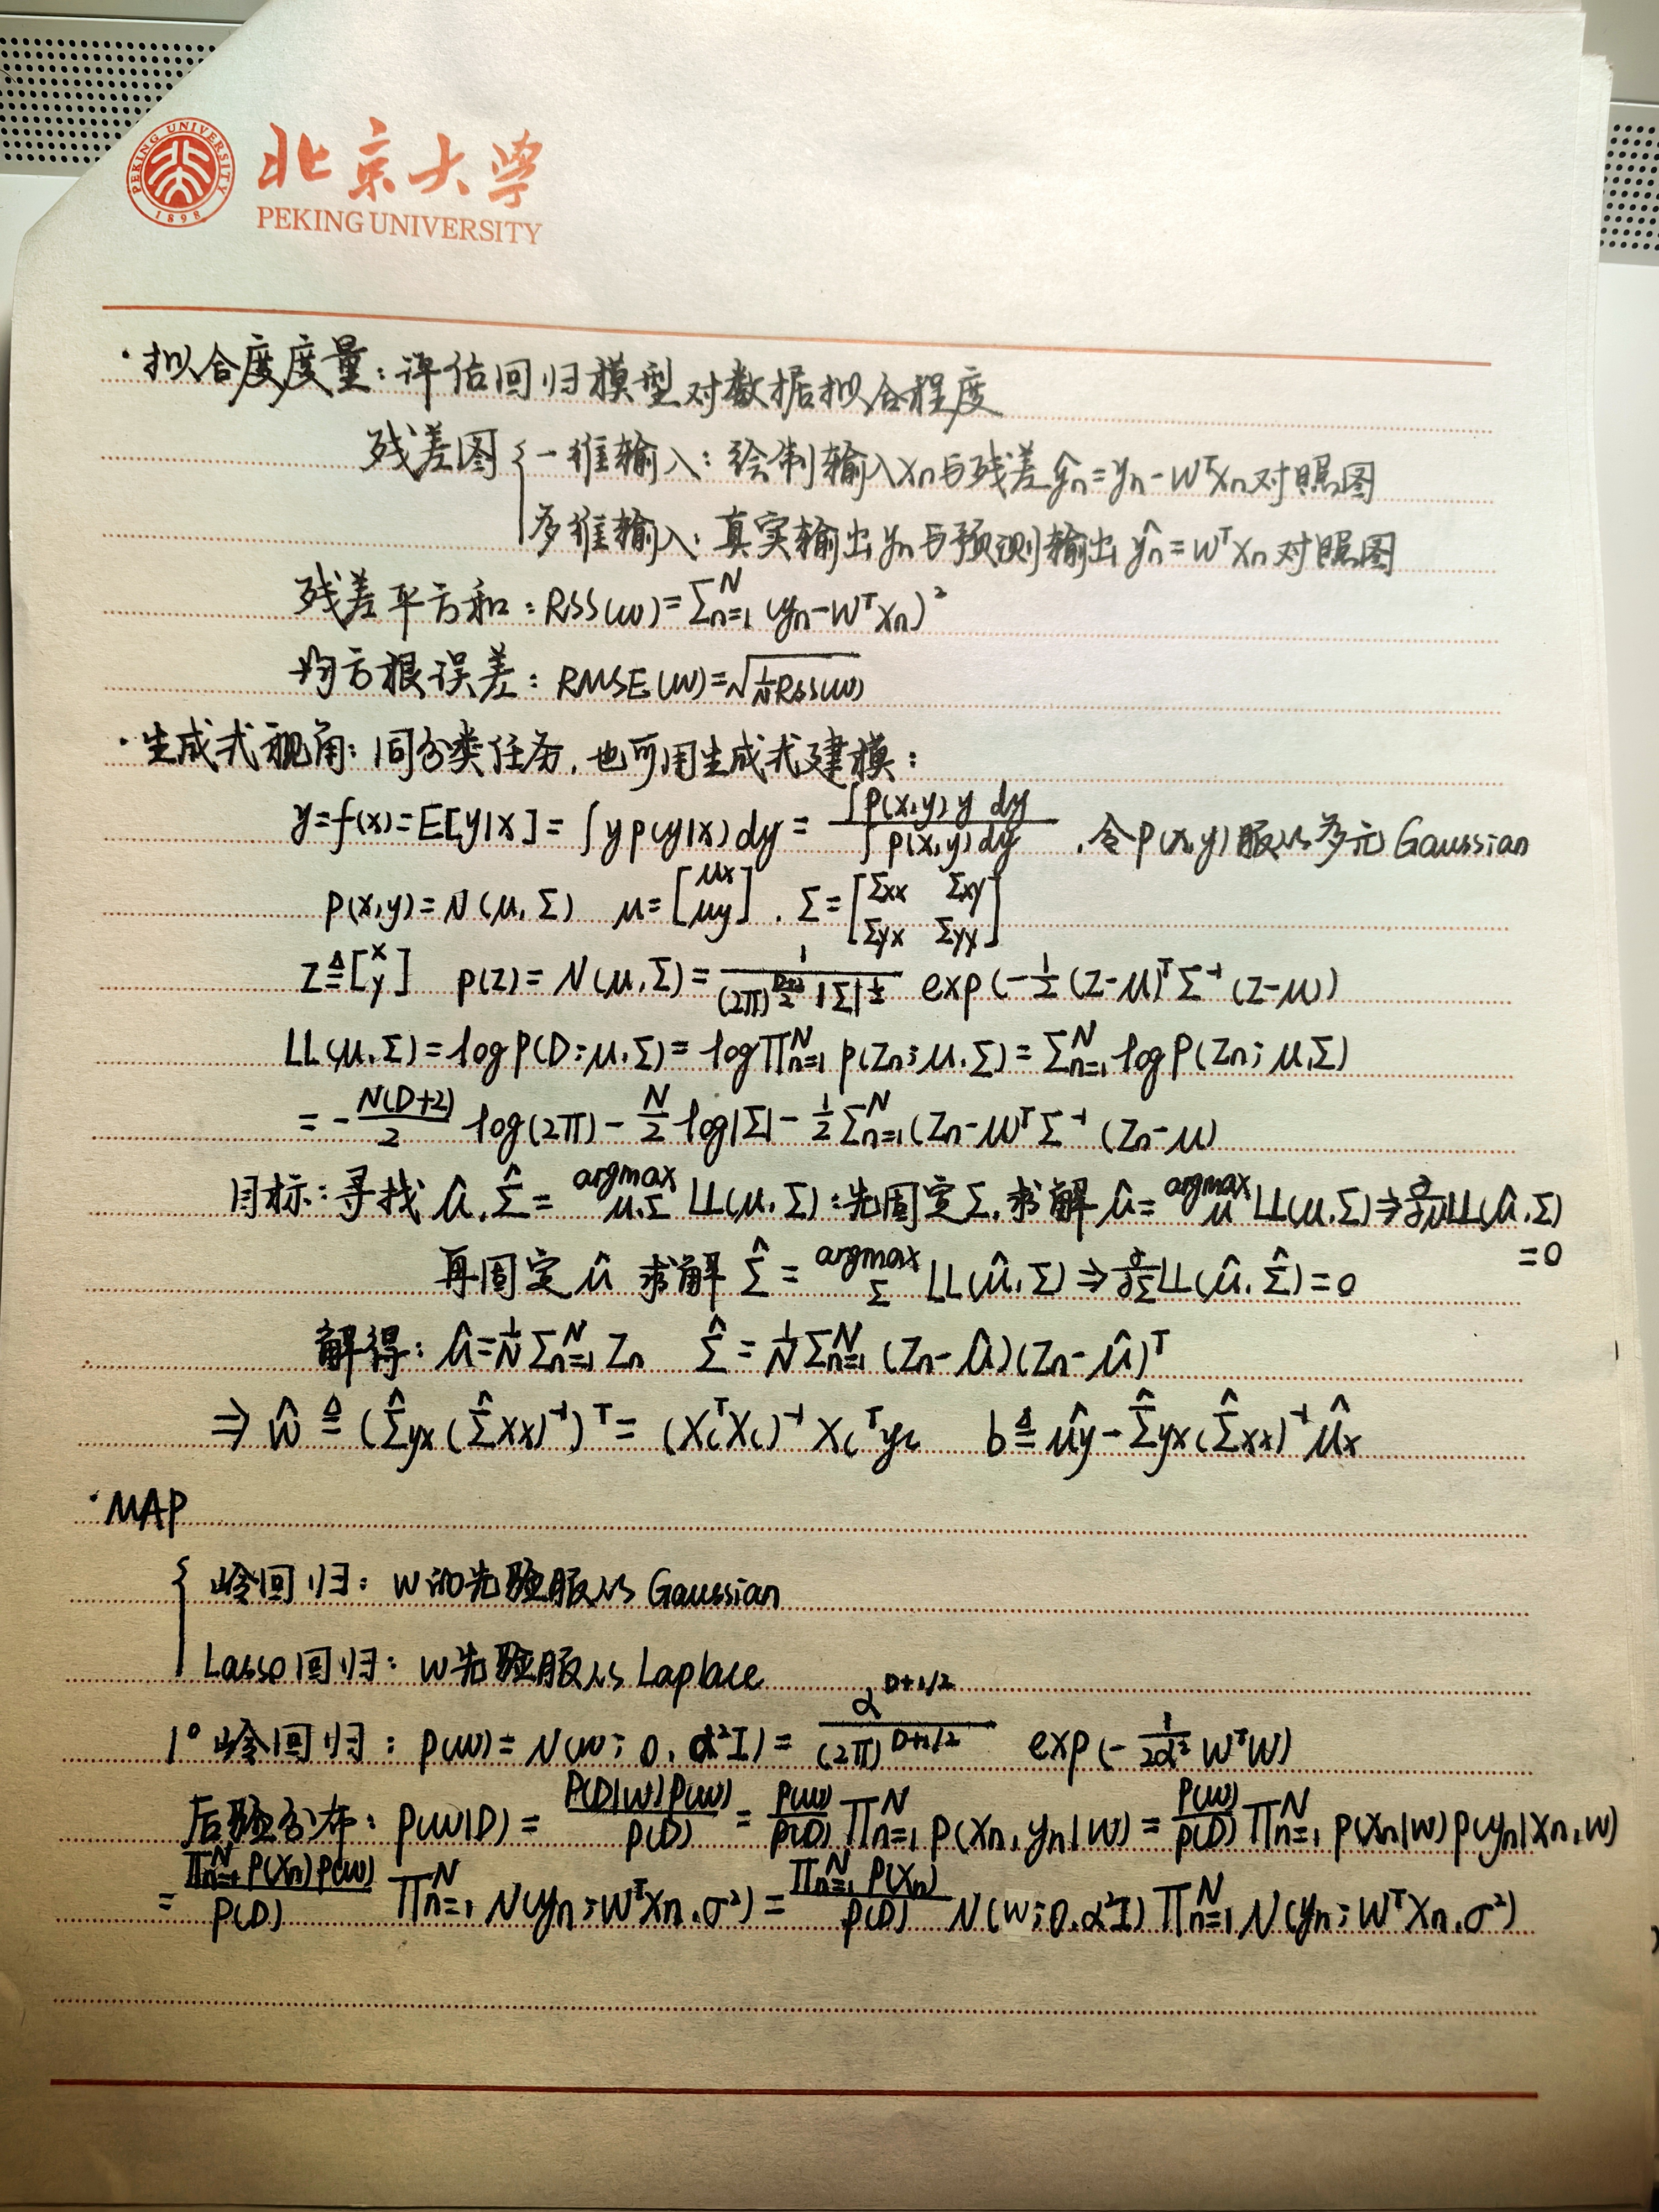 PEKING UNIVERSITY 1898
北京大学
PEKING UNIVERSITY
·拟合度度量:评估回归模型对数据拟合程度
残差图{一维输入:绘制输入xn与残差ŷn=yn-wᵀxn对照图
多维输入:真实输出yn与预测输出ŷn=wᵀxn对照图
残差平方和:RSS(w)=Σn=1^N (yn-wᵀxn)²
均方根误差:RMSE(w)=√(1/N RSS(w))
·生成式视角:同分类任务,也可用生成式建模:
y=f(x)=E[y|x]=∫yp(y|x)dy=∫p(x,y)y dy / ∫p(x,y)dy ,令p(x,y)服从多元Gaussian
p(x,y)=N(μ,Σ) μ=[μx μy],Σ=[Σxx Σxy Σyx Σyy]
z≜[x y] p(z)=N(μ,Σ)=1/((2π)^(D+2)/2 |Σ|^½) exp(-½(z-μ)ᵀΣ⁻¹(z-μ))
LL(μ,Σ)=logp(D;μ,Σ)=logΠn=1^N p(zn;μ,Σ)=Σn=1^N logp(zn;μ,Σ)
=-N(D+2)/2 log(2π)-N/2 log|Σ|-½Σn=1^N(zn-μ)ᵀΣ⁻¹(zn-μ)
目标:寻找μ̂,Σ̂=argmax μ,Σ LL(μ,Σ):先固定Σ,求解μ̂=argmax μ LL(μ,Σ)⇒∂/∂μ LL(μ̂,Σ)
=0
再固定μ̂ 求解Σ̂=argmax Σ LL(μ̂,Σ)⇒∂/∂Σ LL(μ̂,Σ̂)=0
解得:μ̂=1/N Σn=1^N zn Σ̂=1/N Σn=1^N (zn-μ̂)(zn-μ̂)ᵀ
⇒ŵ≜(Σ̂yx(Σ̂xx)⁻¹)ᵀ=(XcᵀXc)⁻¹Xcᵀyc b≜μ̂y-Σ̂yx(Σ̂xx)⁻¹μ̂x
·MAP
{岭回归:w的先验服从Gaussian
Lasso回归:w先验服从Laplace
1°岭回归:p(w)=N(w;0,α²I)=α^D+1/2 / (2π)^D+1/2 exp(-1/2α² wᵀw)
后验分布:p(w|D)=p(D|w)p(w)/p(D)=p(w)/p(D) Πn=1^N p(xn,yn|w)=p(w)/p(D) Πn=1^N p(xn|w)p(yn|xn,w)
=Πn=1^N p(xn)p(w)/p(D) Πn=1^N N(yn;wᵀxn,σ²)=Πn=1^N p(xn)/p(D) N(w;0,α²I)Πn=1^N N(yn;wᵀxn,σ²)